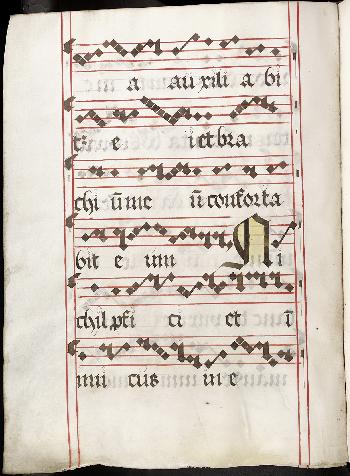 a auxili a bi
t᷑ e i et bra
chi ū me ū conforta
bit e um Ni
chil ꝓfi ci et i
nimi cus in e